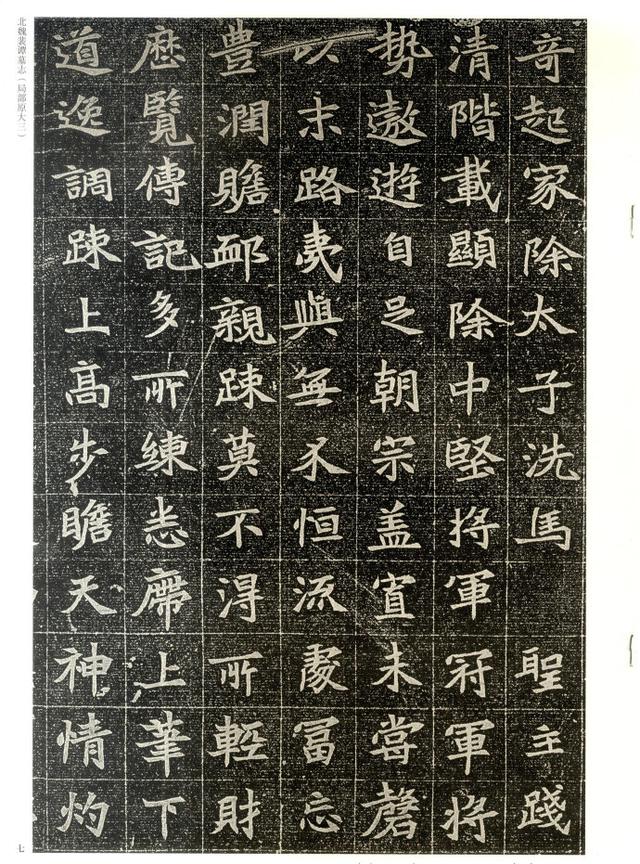 奇起家除太子洗馬　聖主踐
清階載顯除中堅將軍冠軍將
勢遨遊自足朝宗盖宦未嘗罄
以末路夷嶮無不恒流處富忘
豊潤贍卹親踈莫不得所輕財
歷覽傳記多所練悉席上筆下
道逸調踈上高步瞻天神情灼
北魏裴譚墓志（局部原大三）
七